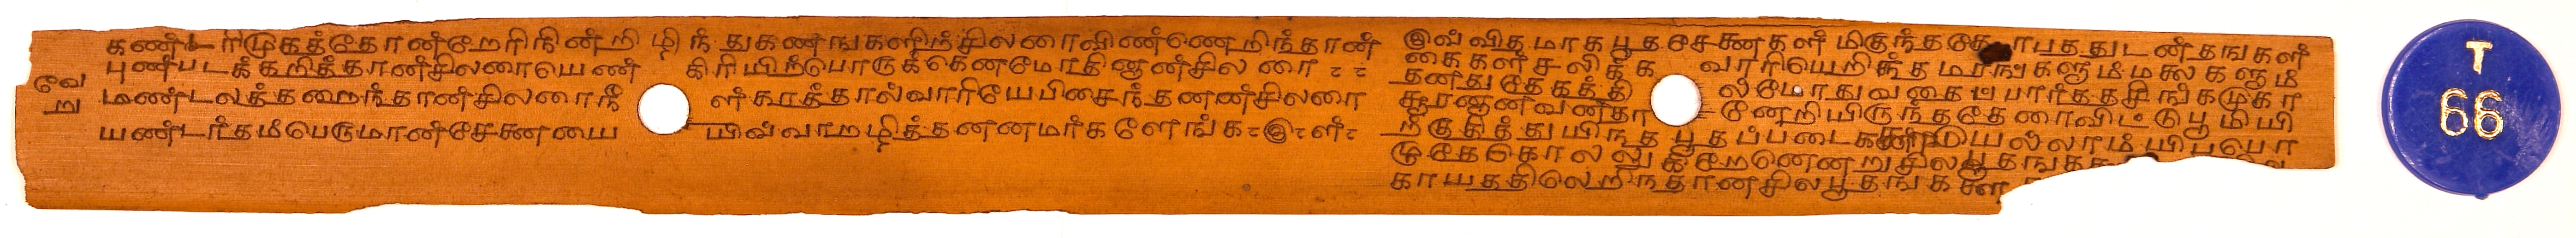 கண்டாமுகத்தோன்றேரிநின்றி ழிந் துகணங்களிற்சிலரைவிண்ணெறிந்தான்
புண்படக்கறித்தான்சிலரையெண் கிரியிற்பொருக்கெனமோதினான்சில ரை
வேறு
மண்டலத்தறைந்தான்சிலரைநீ ள்காத்தால்வாரியேபிசைந்தனன்சிலரை
யண்டர்தம்பெருமான்சேனையை யிவ்வாறழித்தனன
இவ்வித மாக பூத சேனைகள் மிகுந்த துடன் தங்கள்
கைகள் சலிக்க வாரியெறிந்த மரங்களும் மலைகளும்
தனதுதேகத்தி ல் மோதுவதைப்பார்த்தசிங்கமுகா
சூரனானவன்தா னேறியிருந்ததேரைவிட்டு பூமியி
குதித்து யிந்த பூதப்படைகளை யெல்லாம் யிப்பொ
ழுதே கொல்லுகிறேனென்று சில பூதங்களை
காயத்திலெறிந்தான்சில பூதங்களை
T
66